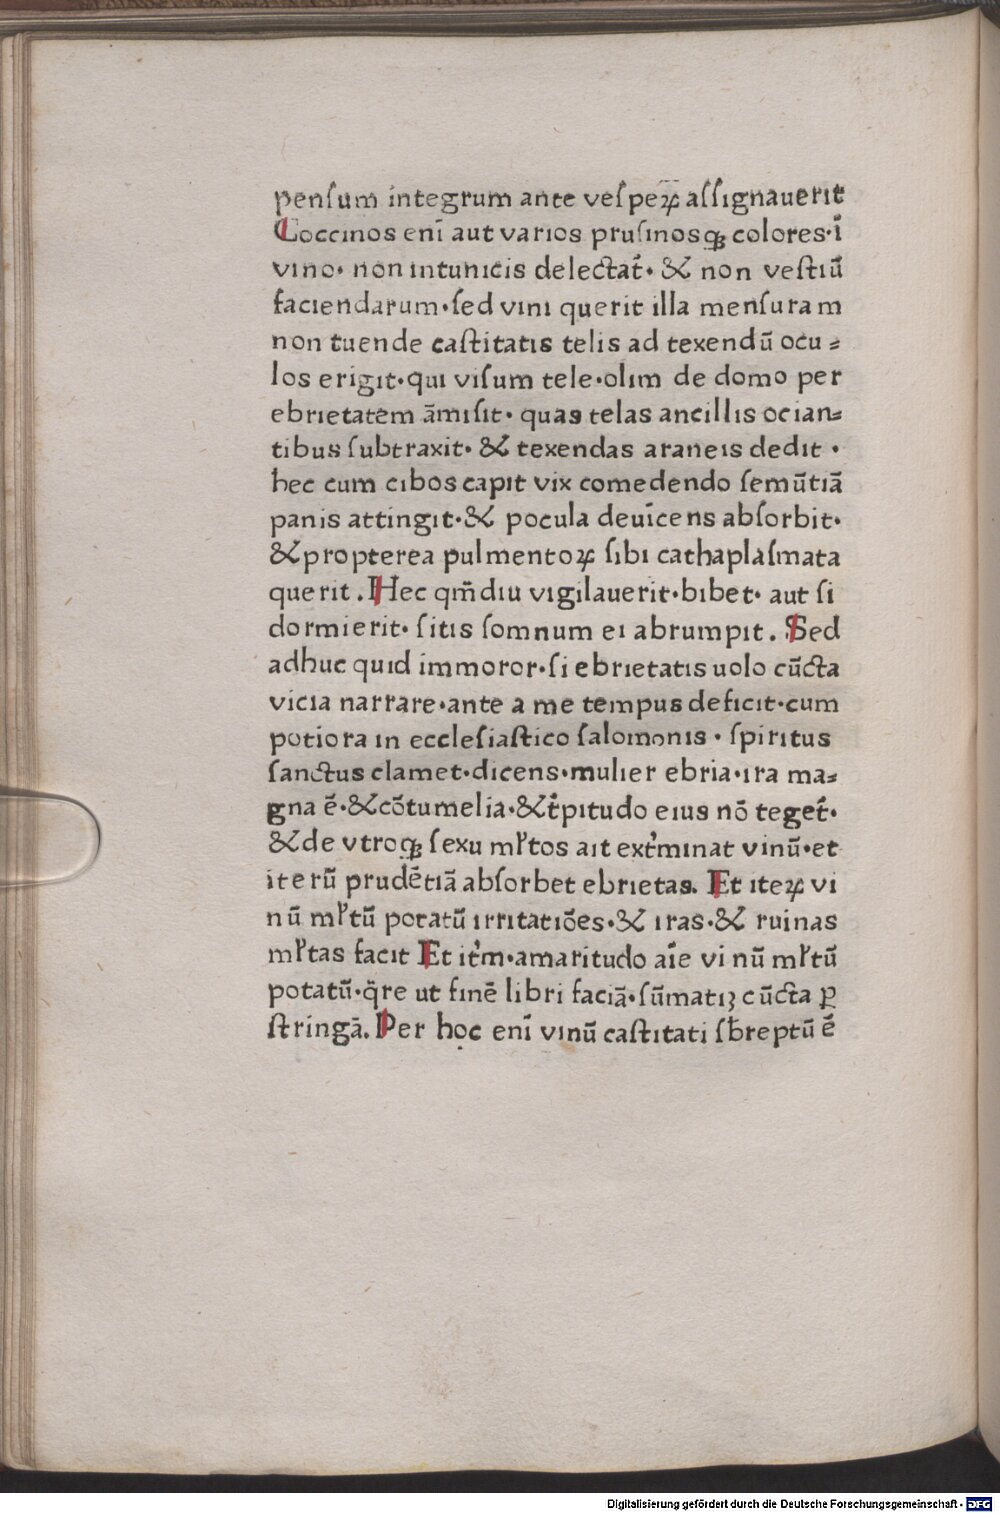 penſum integrum ante veſpeꝝ aſſignauerit
Coccinos enī aut varios pruſinosqꝫ colores·ī
vino· non intunicis delectat᷑· & non veſtiū
faciendarum·ſed vini querit illa menſuram
non tuende caſtitatis telis ad texendū ocu⸗
los erigit·qui viſum tele·olim de domo per
ebrietatem āmiſit· quas telas ancillis ocian⸗
tibus ſubtraxit· & texendas araneis dedit ·
hec cum cibos capit vix comedendo ſemūtiā
panis attingit·& pocula deuīcens abſorbit·
& propterea pulmentoꝝ ſibi cathaplaſmata
querit . Hec qm̄diu vigilauerit·bibet· aut ſi
dormierit· ſitis ſomnum ei abrumpit . Sed
adhuc quid immoror·ſi ebrietatis uolo cūcta
vicia narrare·ante a me tempus deficit·cum
potiora in eccleſiaſtico ſalomonis · ſpiritus
ſanctus clamet·dicens·mulier ebria·ira ma⸗
gna ē·&cōtumelia·&t᷑pitudo eius nō teget᷑·
& de vtroqꝫ ſexu ml̓tos ait ext̓minat vinū·et
iterū prudētiā abſorbet ebrietas. Et iteꝝ vi
nū ml̓tū potatū irritatiōes·& iras·& ruinas
ml̓tas facit Et it̓m·amaritudo aīe vinū ml̓tū
potatū·q̄re ut finē libri faciā·ſūmatiꝫ cūcta ꝑ
ſtringā. Per hoc enī vinū caſtitati ſb̓reptū ē
Digitalisierung gefördert durch die Deutsche Forschungsgemeinschaft - DFG